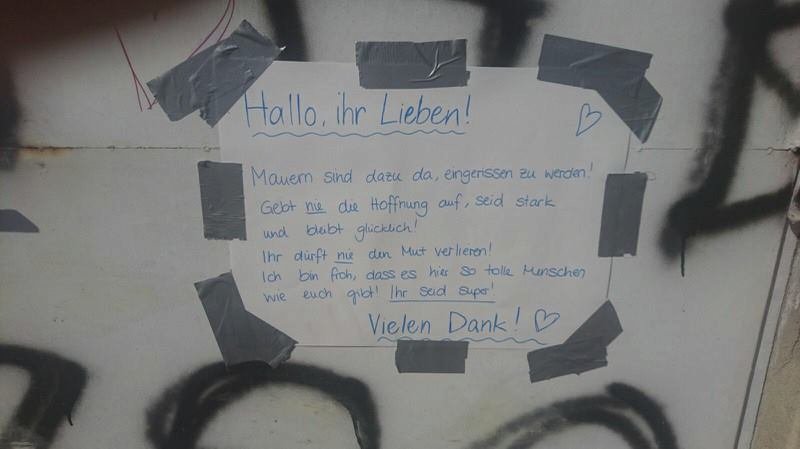 Hallo, ihr Lieben!
Mauern sind dazu da, eingerissen zu werden!
Gebt nie die Hoffnung auf, seid stark
und bleibt glücklich!
Ihr dürft nie den Mut verlieren!
Ich bin froh, dass es hier so tolle Menschen
wie euch gibt! Ihr seid super!
Vielen Dank!